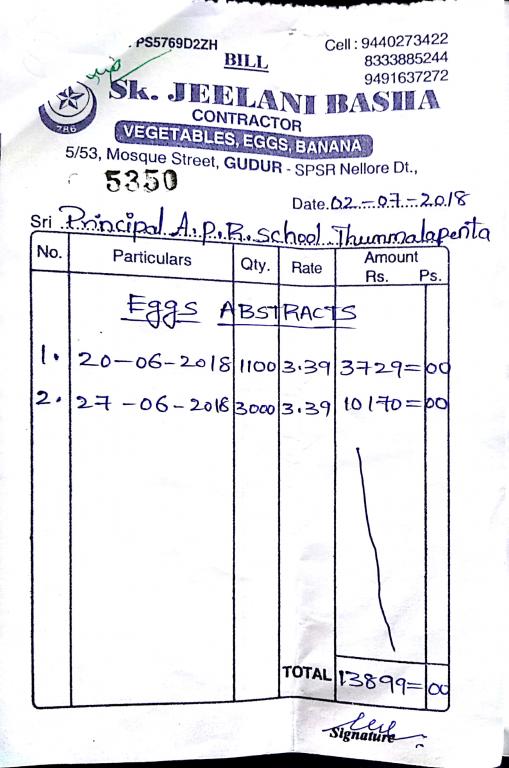 PS5769D2ZH
BILL
Cell : 9440273422
8333885244
9491637272
Sk. JEELANI BASHA
786
CONTRACTOR
VEGETABLES, EGGS, BANANA
5/53, Mosque Street, GUDUR - SPSR Nellore Dt.,
5350
Date. 02-07-2018
Sri Principal A.P.R. school Thummalapenta
No. Particulars Qty. Rate Amount Rs. Ps.
Eggs ABSTRACTS
1. 20-06-2018 1100 3.39 3729=00
2. 27-06-2018 3000 3.39 10170=00
TOTAL 13899=00
Signature